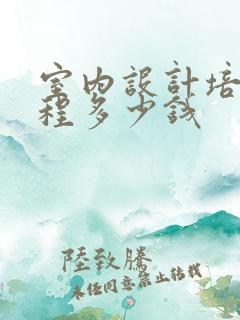 室内設計培
程多少錢
陸致騰
未经同意禁止转载